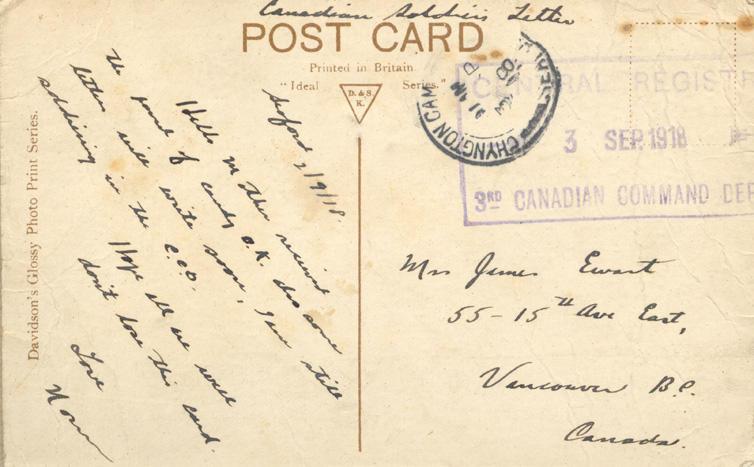 Canadian Soldiers Letter
POST CARD
Printed in Britain
"Ideal Series."
D. & S.
K.
Davidson's Glossy Photo Print Series.
CHYNGTON CAMP
CENTRAL REGISTR
3 SEP. 1918
3RD CANADIAN COMMAND DEP
Seaford 2/9/18.
Hello m ther received
the parcel of candy O.K. also some
letters will write soon, I am still
soldiering in the C.C.D.
Hope all are well
don't lose this card.
Love
Norm
Mrs James Ewart
55-15th Ave East,
Vancouver B.C.
Canada.